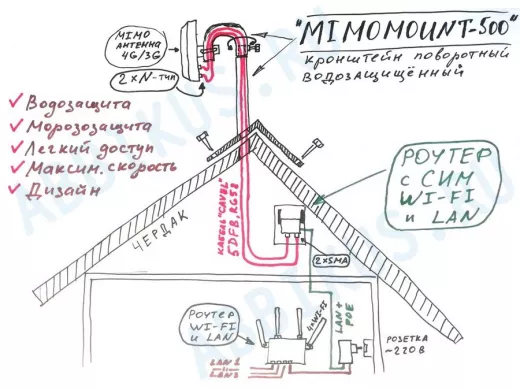 "MIMOMOUNT-500"
кронштейн поворотный
водозащищённый
MIMO
АНТЕННА
4G/3G
2×N-тип
Водозащита
Морозозащита
Легкий доступ
Максим. скорость
Дизайн
РОУТЕР
с СИМ
WI-FI
и LAN
ЧЕРДАК
КАБЕЛЬ "CAVEL"
5DFB, RG58
2×SMA
LAN +
POE
РОУТЕР
WI-FI
и LAN
4×WI-FI
РОЗЕТКА
~220В
LAN 1
LAN 2